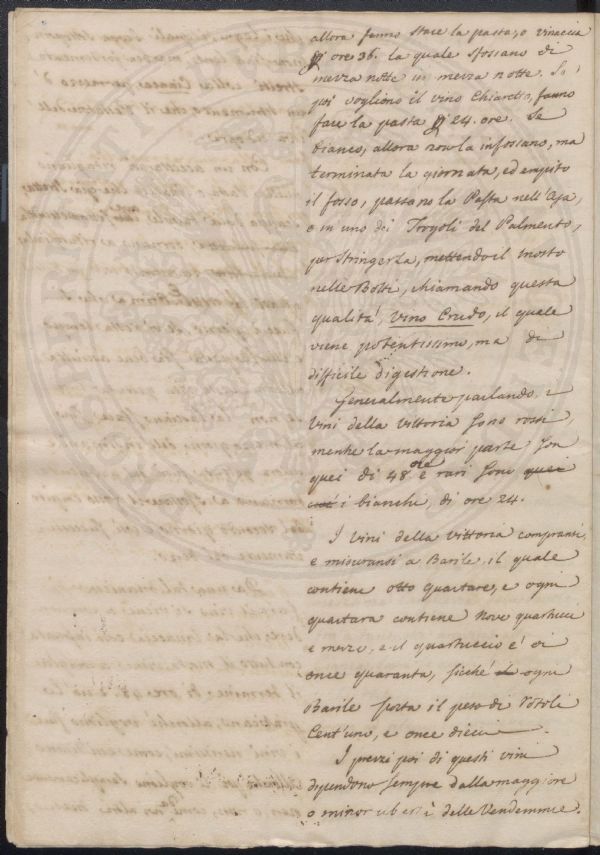 allora fanno stare la pasta, o vinaccia
p ore 36. la quale sfossano di
mezza notte in mezza notte. Se
poi vogliono il vino Chiaretto, fanno
fare la pasta p 24. ore. Se
bianco, allora non la infossano, ma
terminata la giornata, ed empito
il fosso, passano la Pasta nell'Aja,
o in uno dei Torgoli del Palmento,
per stringerla, mettendo il mosto
nelle Botti, chiamando questa
qualità, Vino Crudo, il quale
viene potentissimo, ma di
difficile digestione.
Generalmente parlando, i
Vini della Vittoria sono rossi,
mentre la maggior parte son
quei di 48 ore e rari sono quei
i bianchi, di ore 24.
I Vini della Vittoria compransi,
e misuransi a Barile, il quale
contiene otto quartare, e ogni
quartara contiene nove quartucci
e mezzo, e il quartuccio è di
once quaranta, sicchè ogni
Barile porta il peso di Rotoli
Cent'uno, e once dieci.
I prezzi poi di questi vini
dipendono sempre dalla maggiore
o minor ubertà delle Vendemmie.